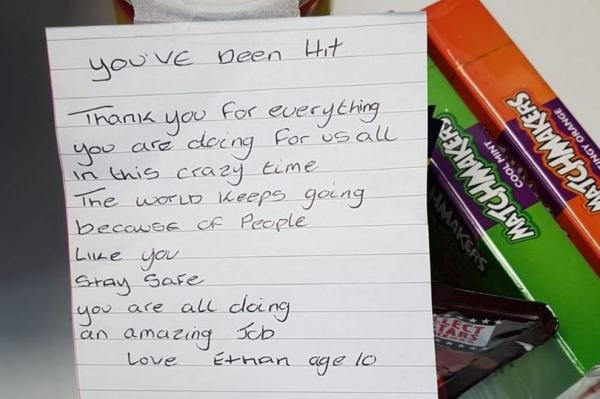 you've been Hit
Thank you for everything
you are doing for us all
in this crazy time
The world keeps going
because of People
Like you
Stay Safe
you are all doing
an amazing Job
Love Ethan age 10
MATCHMAKERS
COOL MINT
MATCHMAKERS
MATCHMAKERS